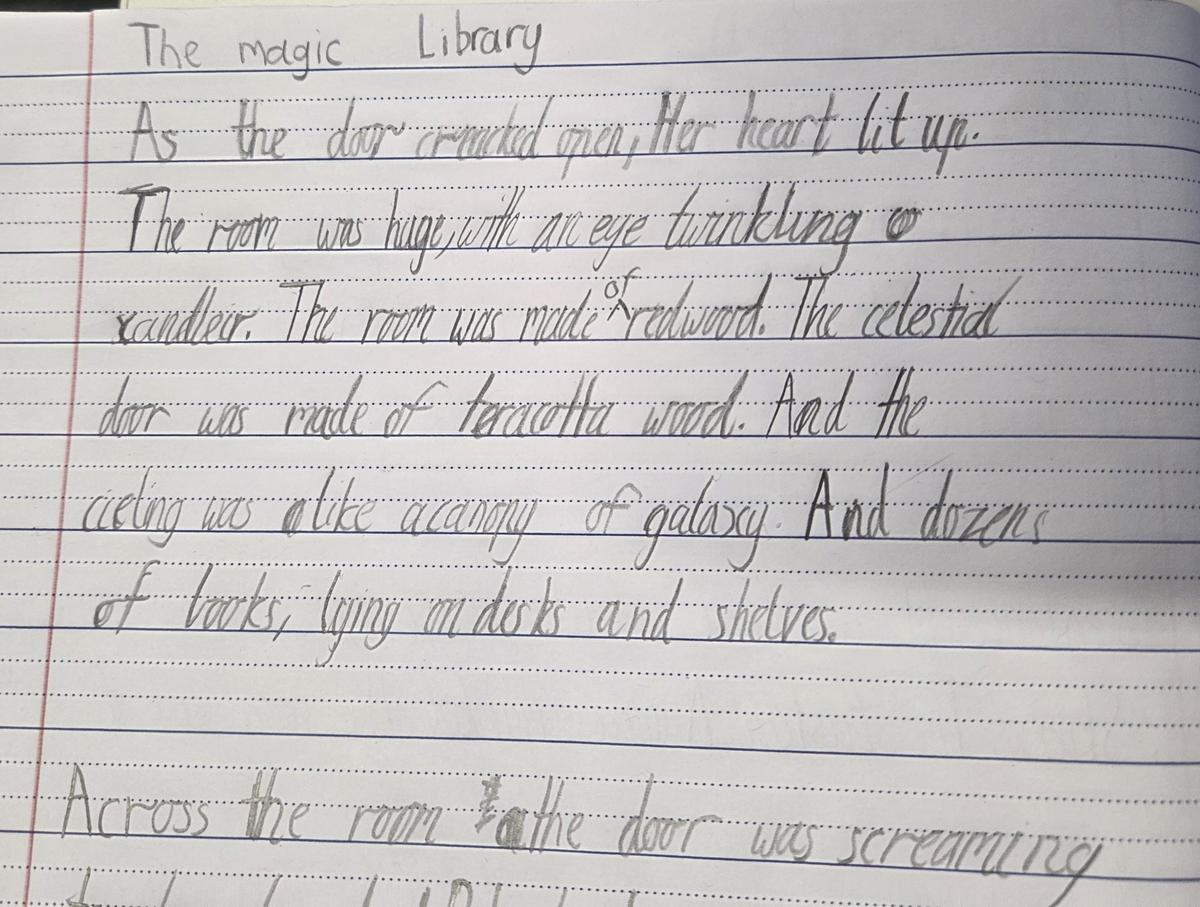 The magic Library
As the door cracked open, Her heart lit up.
The room was huge, with an eye twinkling
xandleir. The room was made of redwood. The celestial
door was made of teracotta wood. And the
cieling was alike a canopy of galaxy. And dozens
of books, lying on desks and shelves.
Across the room the door was screaming